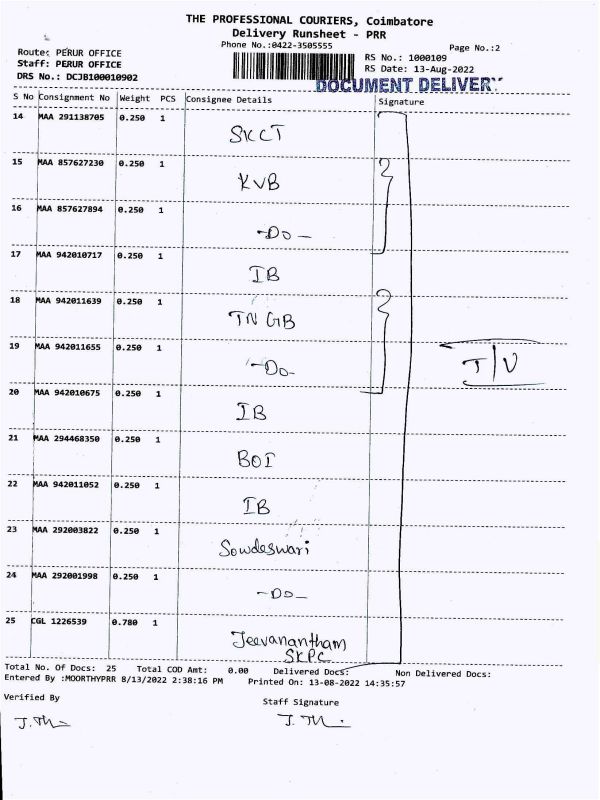 THE PROFESSIONAL COURIERS, Coimbatore
Delivery Runsheet - PRR
Phone No.:0422-3505555
Page No.:2
Route: PERUR OFFICE
RS No.: 1000109
Staff: PERUR OFFICE
RS Date: 13-Aug-2022
DRS No.: DCJB100010902
DOCUMENT DELIVERY
S No Consignment No Weight PCS Consignee Details Signature
14 MAA 291138705 0.250 1
SKCT
15 MAA 857627230 0.250 1
KVB
16 MAA 857627894 0.250 1
-Do-
17 MAA 942010717 0.250 1
IB
18 MAA 942011639 0.250 1
TN GB
19 MAA 942011655 0.250 1
-Do-
T/V
20 MAA 942010675 0.250 1
IB
21 MAA 294468350 0.250 1
BOI
22 MAA 942011052 0.250 1
IB
23 MAA 292003822 0.250 1
Sowdeswari
24 MAA 292001998 0.250 1
-DO-
25 CGL 1226539 0.780 1
Jeevanantham
SKPC
Total No. Of Docs: 25 Total COD Amt: 0.00 Delivered Docs: Non Delivered Docs:
Entered By :MOORTHYPRR 8/13/2022 2:38:16 PM Printed On: 13-08-2022 14:35:57
Verified By
Staff Signature